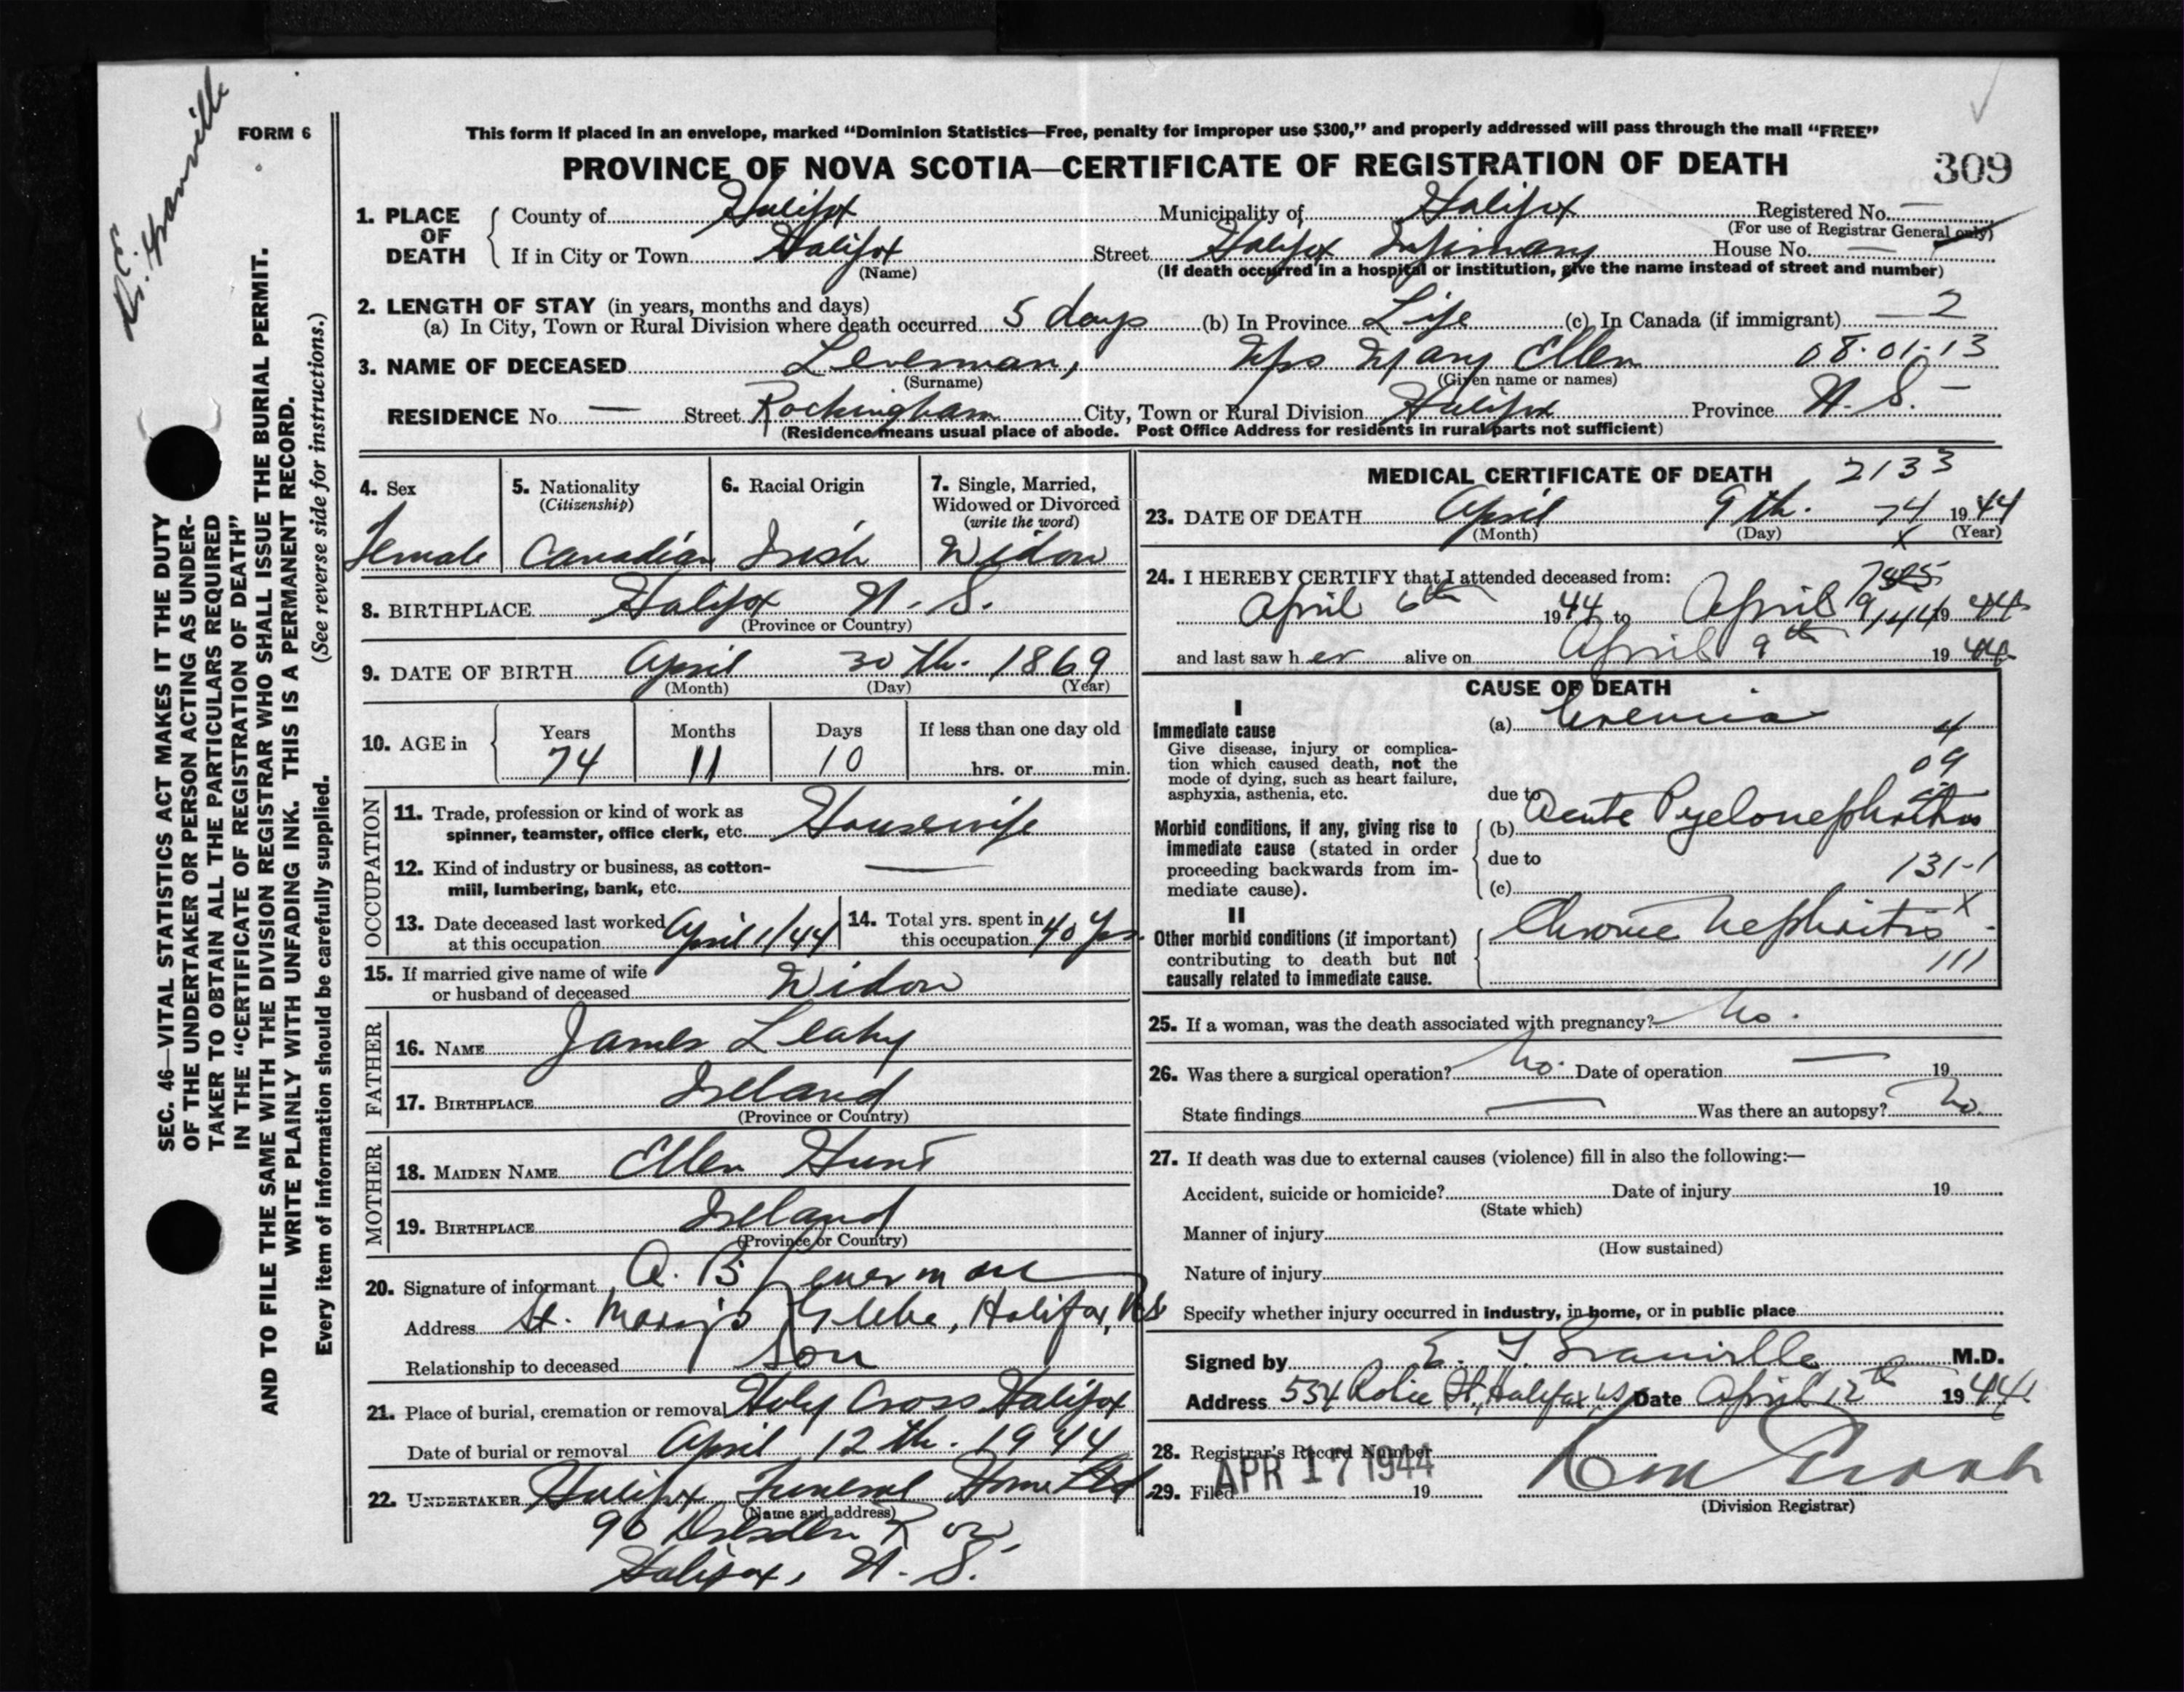 Dr. E. Granville
FORM 6
This form if placed in an envelope, marked “Dominion Statistics—Free, penalty for improper use $300,” and properly addressed will pass through the mail “FREE”
PROVINCE OF NOVA SCOTIA—CERTIFICATE OF REGISTRATION OF DEATH
309
1. PLACE OF DEATH
County of Halifax Municipality of Halifax Registered No. —
(For use of Registrar General only)
If in City or Town Halifax Street Halifax Infirmary House No. —
(Name) (If death occurred in a hospital or institution, give the name instead of street and number)
2. LENGTH OF STAY (in years, months and days)
(a) In City, Town or Rural Division where death occurred 5 days (b) In Province Life (c) In Canada (if immigrant) — 2
3. NAME OF DECEASED Leverman, Mrs Mary Ellen 08·01·13
(Surname) (Given name or names)
RESIDENCE No. — Street Rockingham City, Town or Rural Division Halifax Province N. S. —
(Residence means usual place of abode. Post Office Address for residents in rural parts not sufficient)
SEC. 46—VITAL STATISTICS ACT MAKES IT THE DUTY
OF THE UNDERTAKER OR PERSON ACTING AS UNDER-
TAKER TO OBTAIN ALL THE PARTICULARS REQUIRED
IN THE “CERTIFICATE OF REGISTRATION OF DEATH”
AND TO FILE THE SAME WITH THE DIVISION REGISTRAR WHO SHALL ISSUE THE BURIAL PERMIT.
WRITE PLAINLY WITH UNFADING INK. THIS IS A PERMANENT RECORD.
Every item of information should be carefully supplied. (See reverse side for instructions.)
4. Sex
Female
5. Nationality
(Citizenship)
Canadian
6. Racial Origin
Irish
7. Single, Married,
Widowed or Divorced
(write the word)
Widow
8. BIRTHPLACE Halifax N. S.
(Province or Country)
9. DATE OF BIRTH April 30th. 1869
(Month) (Day) (Year)
10. AGE in
Years Months Days If less than one day old
74 11 10 hrs. or min.
OCCUPATION
11. Trade, profession or kind of work as
spinner, teamster, office clerk, etc. Housewife
12. Kind of industry or business, as cotton-
mill, lumbering, bank, etc. —
13. Date deceased last worked
at this occupation April 1/44
14. Total yrs. spent in
this occupation 40 yrs.
15. If married give name of wife
or husband of deceased Widow
FATHER
16. NAME James Leahy
17. BIRTHPLACE Ireland
(Province or Country)
MOTHER
18. MAIDEN NAME Ellen Hunt
19. BIRTHPLACE Ireland
(Province or Country)
20. Signature of informant A. B. Leverman
Address St. Mary's Glebe, Halifax, NS
Relationship to deceased Son
21. Place of burial, cremation or removal Holy Cross Halifax
Date of burial or removal April 12th. 1944
22. UNDERTAKER Halifax Funeral Home Ltd
(Name and address)
90 Dresden Row,
Halifax, N. S.
MEDICAL CERTIFICATE OF DEATH 2133
23. DATE OF DEATH April 9th. 74 1944
(Month) (Day) x (Year)
24. I HEREBY CERTIFY that I attended deceased from:
April 6th 1944 to April 9/44 1944
and last saw her alive on April 9th 1944
CAUSE OF DEATH
I
Immediate cause
Give disease, injury or complica-
tion which caused death, not the
mode of dying, such as heart failure,
asphyxia, asthenia, etc.
(a) Uremia 4
09
due to
Morbid conditions, if any, giving rise to
immediate cause (stated in order
proceeding backwards from im-
mediate cause).
(b) Acute Pyelonephritis
due to
131-1
(c)
II
Other morbid conditions (if important)
contributing to death but not
causally related to immediate cause.
Chronic Nephritis X
111
25. If a woman, was the death associated with pregnancy? No.
26. Was there a surgical operation? No. Date of operation — 19
State findings — Was there an autopsy? No.
27. If death was due to external causes (violence) fill in also the following:—
Accident, suicide or homicide? Date of injury 19
(State which)
Manner of injury
(How sustained)
Nature of injury
Specify whether injury occurred in industry, in home, or in public place
Signed by E. F. Granville M.D.
Address 554 Robie St., Halifax, NS Date April 12th 1944
28. Registrar's Record Number
29. Filed APR 17 1944 19
(Division Registrar)